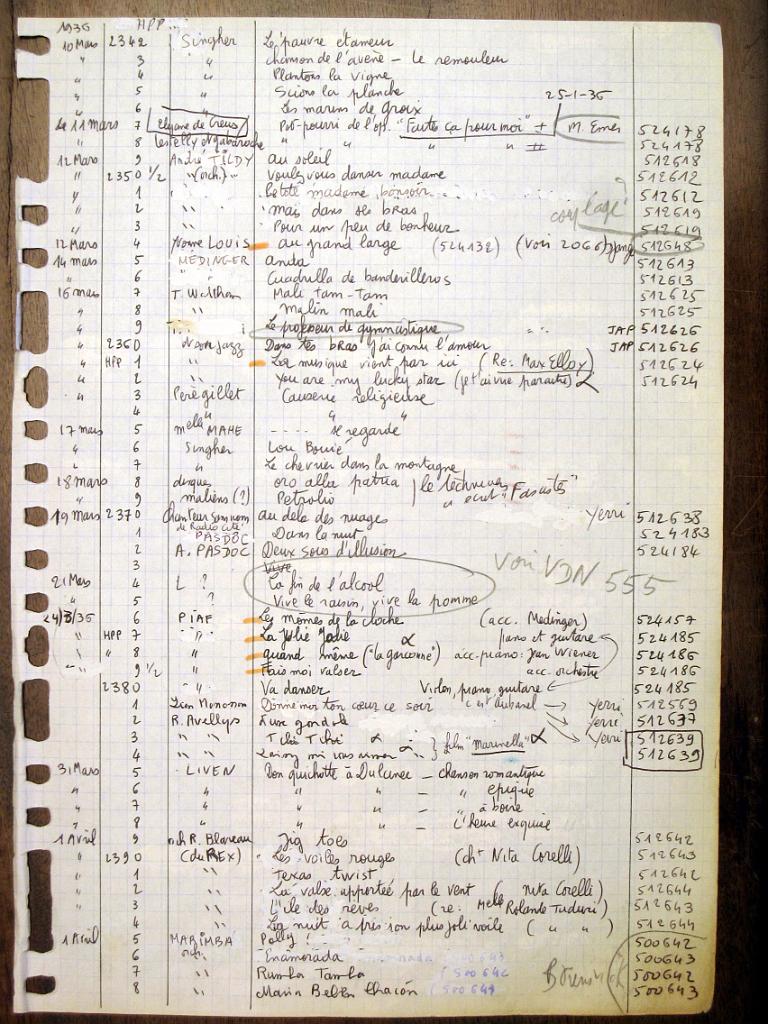 1936 HPP
10 Mars 2342 Singher Le pauvre étameur
" 3 " chanson de l'avène - Le remouleur
" 4 " Plantons la vigne
" 5 " Scions la planche
" 6 " Les marins de Groix 25-1-36
Le 11 mars 7 Pot-pourri de l'op. "Faites ça pour moi" + 524178
8 " " " 524178
12 Mars 9 André TILDY au soleil 512618
" 2350 1/2 (orch.) Voulez vous danser madame 512612
" 1 madame bonsoir 512612
" 2 mais dans ses bras 512619
" 3 Pour un peu de bonheur 512619
12 Mars 4 Yvonne LOUIS au grand large (524132) (voir 2066) 512648
14 mars 5 MEDINGER anita 512613
" 6 " Cuadrilla de banderilleros 512613
16 mars 7 T. Waltham Mali Tam-Tam 512625
" 8 " Malin mali 512625
" 9 Le professeur de gymnastique " JAP 512626
" 2360 Jazz Dans tes bras j'ai connu l'amour JAP 512626
" HPP 1 " La musique vient par ici (Re: Max Elloy) 512624
" 2 " You are my lucky star (je t'ai vue paraitre) α 512624
" 3 Père gillet Causerie religieuse
4 " " "
17 mars 5 melle MAHE ---- se regarde
" 6 Singher Lou Bouié
" 7 " Le chevrier dans la montagne
18 mars 8 disques oro alla patria le technicien
" 9 maliens (?) Petrolio a ecrit "Fasistes"
19 Mars 2370 Chanteur sans nom au dela des nuages Yerri 512638
1 de Radio Cité PASDOC Dans la nuit 524183
2 A. PASDOC Deux sous d'illusion 524184
3 Vive
21 Mars 4 L ? La fin de l'alcool voir VDN 555
" 5 ? Vive le raisin, vive la pomme
24/3/36 6 PIAF Les mômes de la cloche (acc. Medinger) 524157
" HPP 7 " La Julie Jolie α piano et guitare 524185
" " 8 " quand même ("la garçonne") acc. piano: Jean Wiener 524186
" 9 1/2 " Fais moi valser acc. orchestre 524186
2380 " Va danser Violon, piano, guitare 524185
1 Donne moi ton cœur ce soir → Yerri 512569
2 R. Avellys Yerri 512637
3 " " Tchi Tchi α Yerri 512639
4 " " Laissez moi vous aimer α } film "Marinella" α 512639
31 Mars 5 LIVEN Don quichotte à Dulcinée - chanson romantique
" 6 " " " - " epique
" 7 " " " - " à boire
" 8 " L'heure exquise
1 Avril 9 orch R. Blareau Jig toes 512642
" 2390 (du REX) Les voiles rouges (cht Nita Corelli) 512643
" 1 " Texas twist 512642
" 2 " La valse apportée par le vent (nita Corelli) 512644
" 3 " L'ile des reves (re: Melle Rolande Tuduri) 512643
" 4 " La nuit a pris son plus joli voile ( " " ) 512644
1 Avril 5 MARIMBA Polly 500642
6 orch. Enamorada 500643
7 " Rumba Tamba (500642 500642
8 " Maria Belen Chacón (500643 500643